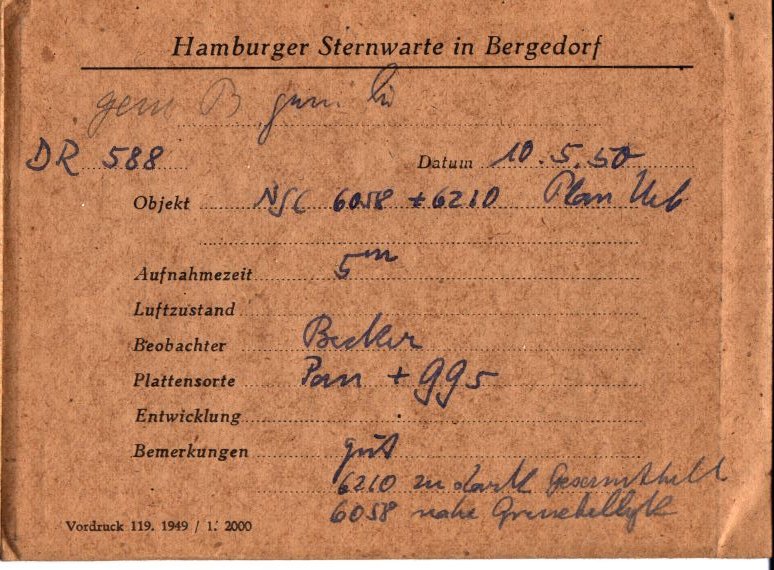 Hamburger Sternwarte in Bergedorf
gem B
DR 588 Datum 10.5.50
Objekt NGC 6058 + 6210 Plan Neb
Aufnahmezeit 5m
Luftzustand
Beobachter Becker
Plattensorte Pan + gg5
Entwicklung
Bemerkungen gut
6210 zu stark
6058 nahe
Vordruck 119. 1949 / 1. 2000